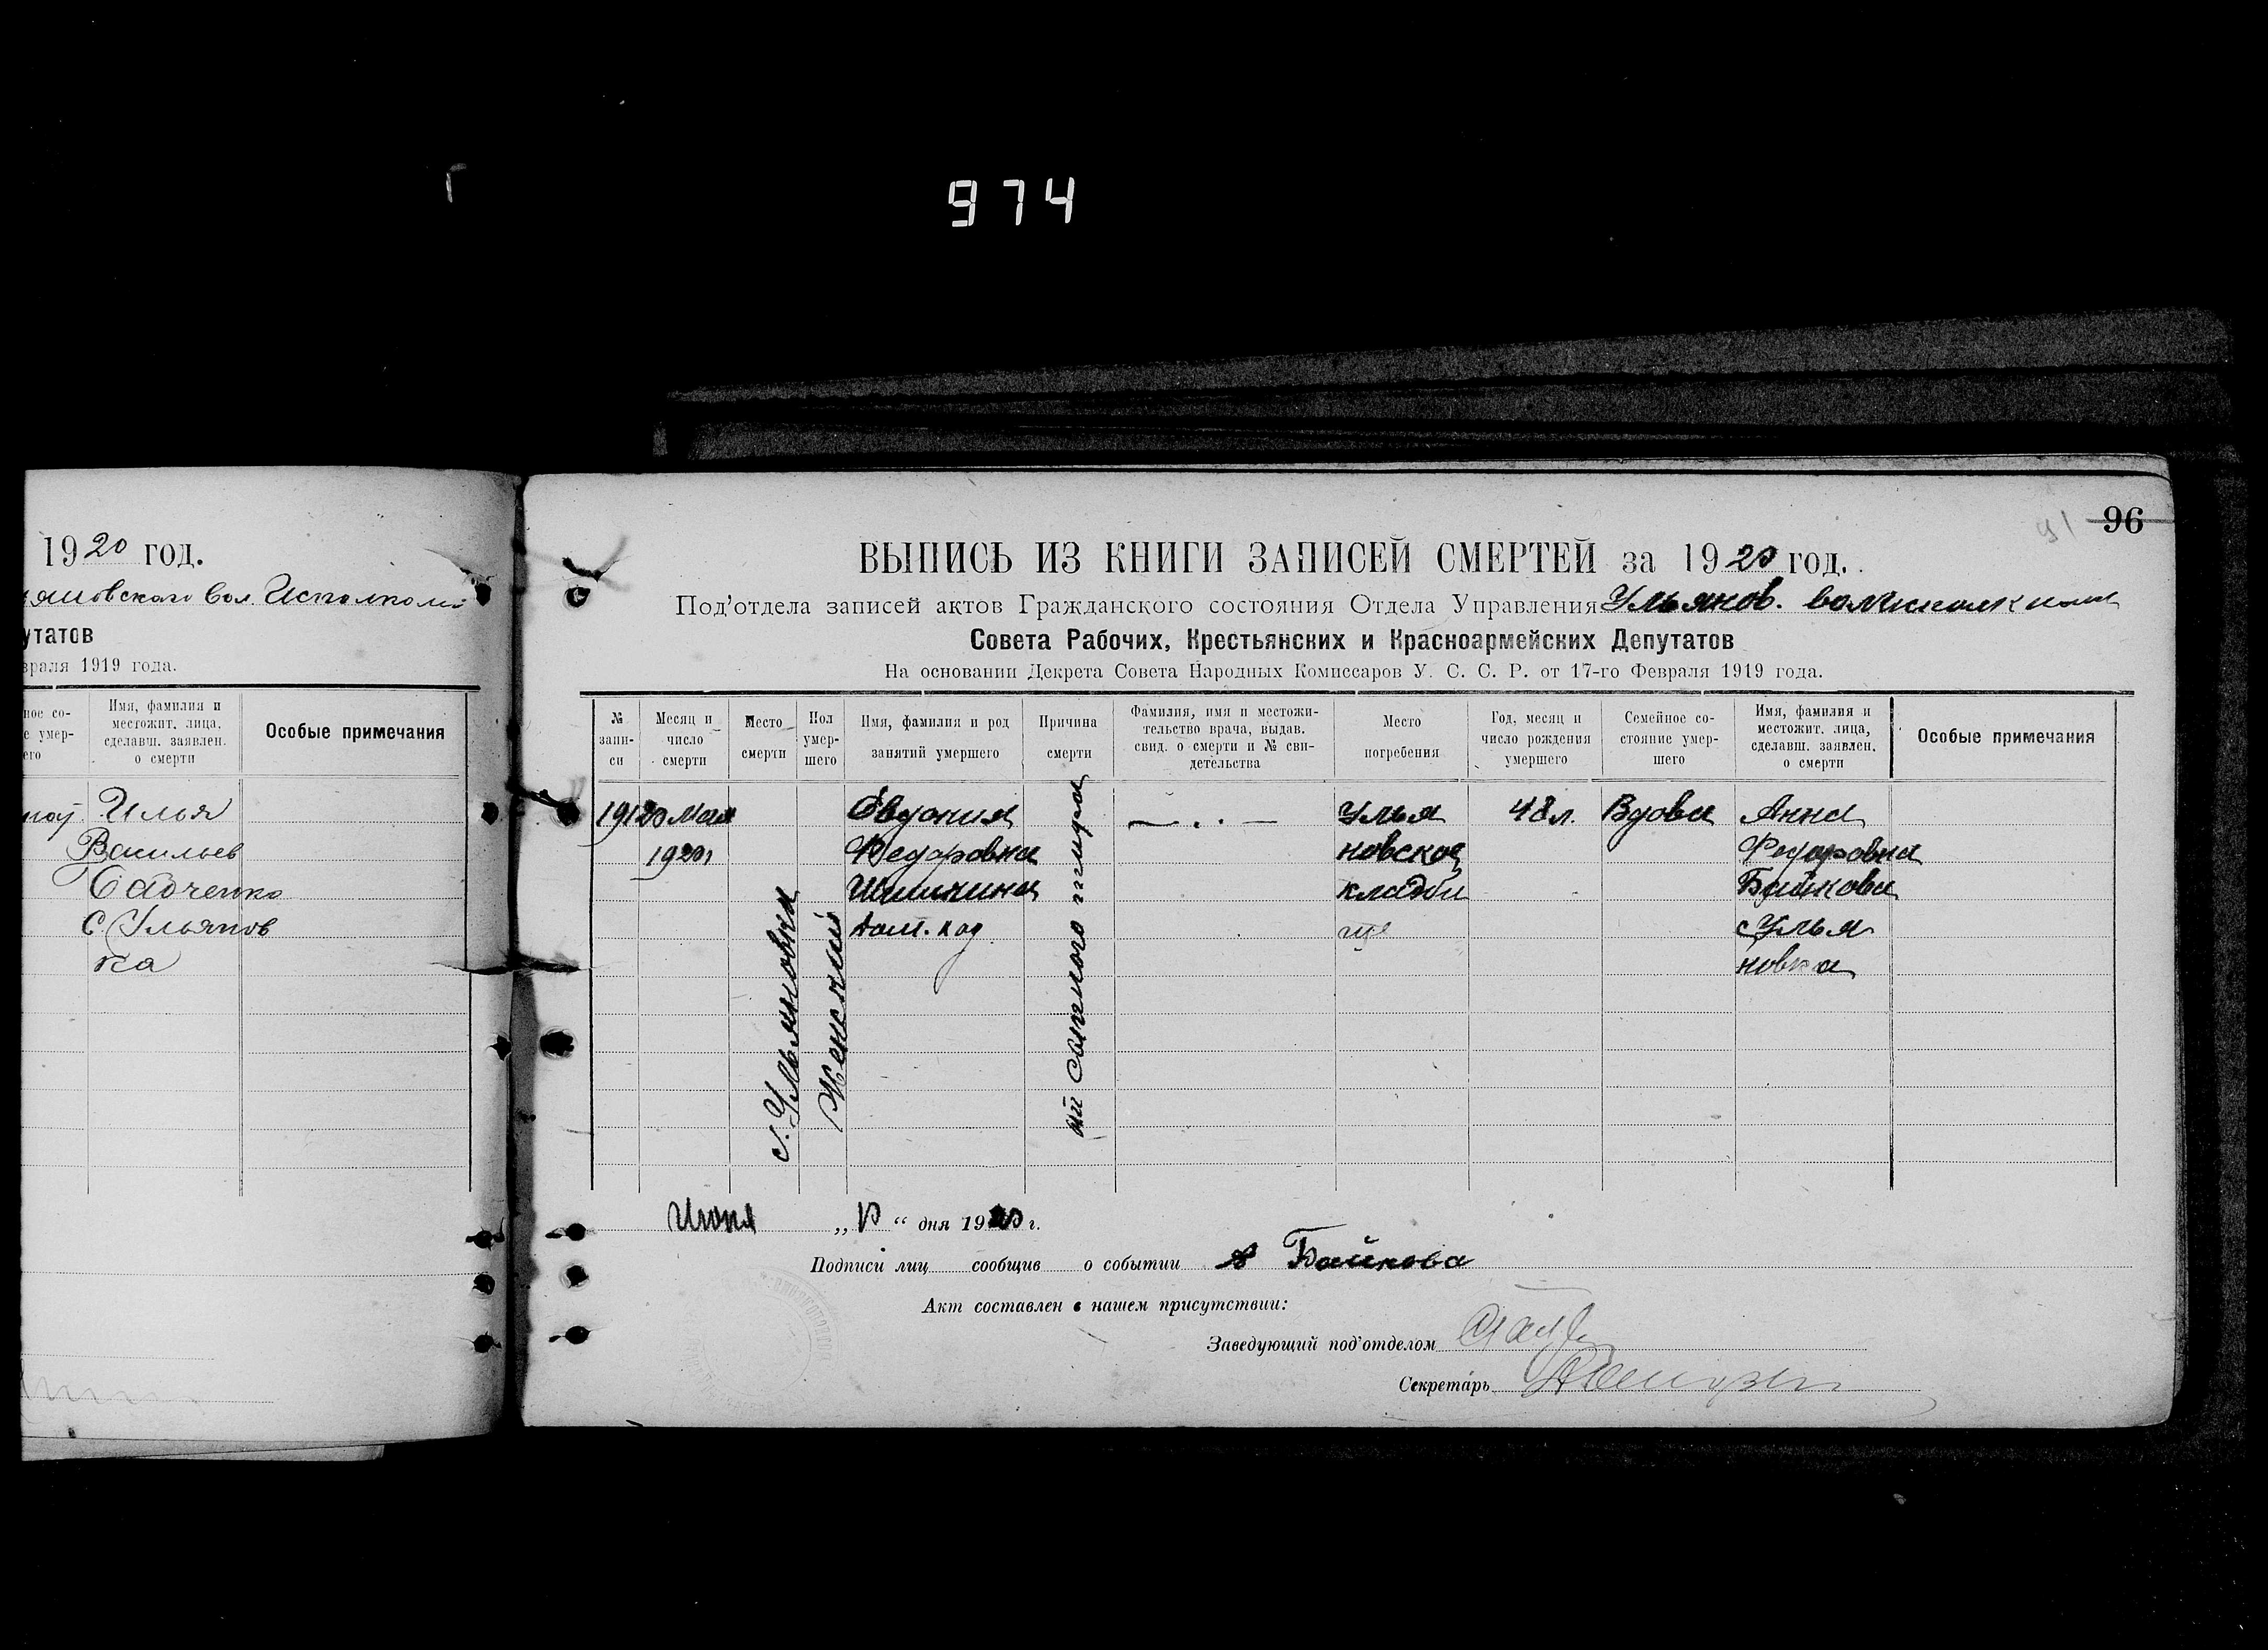 974
1920 год.
яновского вол. Исполком
утатов
враля 1919 года.
ное со-
е умер-
его
Имя, фамилия и
местожит. лица,
сделавш. заявлен.
о смерти
Особые примечания
Илья
Васильев
С. Ульянов
ка
91 96
ВЫПИСЬ ИЗ КНИГИ ЗАПИСЕЙ СМЕРТЕЙ за 1920 год.
Под'отдела записей актов Гражданского состояния Отдела Управления Ульянов.
Совета Рабочих, Крестьянских и Красноармейских Депутатов
На основании Декрета Совета Народных Комиссаров У. С. С. Р. от 17-го Февраля 1919 года.
№
запи-
си
Месяц и
число
смерти
Место
смерти
Пол
умер-
шего
Имя, фамилия и род
занятий умершего
Причина
смерти
Фамилия, имя и местожи-
тельство врача, выдав.
свид. о смерти и № сви-
детельства
Место
погребения
Год, месяц и
число рождения
умершего
Семейное со-
стояние умер-
шего
Имя, фамилия и
местожит. лица,
сделавш. заявлен.
о смерти
Особые примечания
Мая
1920
с. Ульяновка
Женский
Евдокия
Федоровна
Шишкина
дом. хоз
Улья
новское
кладби
ще
48 л.
Вдова
Анна
Федоровна
Байкова
с Улья
новка
Июня „ “ дня 1920 г.
Подписи лиц сообщив о событии А Байкова
Акт составлен в нашем присутствии:
Заведующий под'отделом
Секретарь